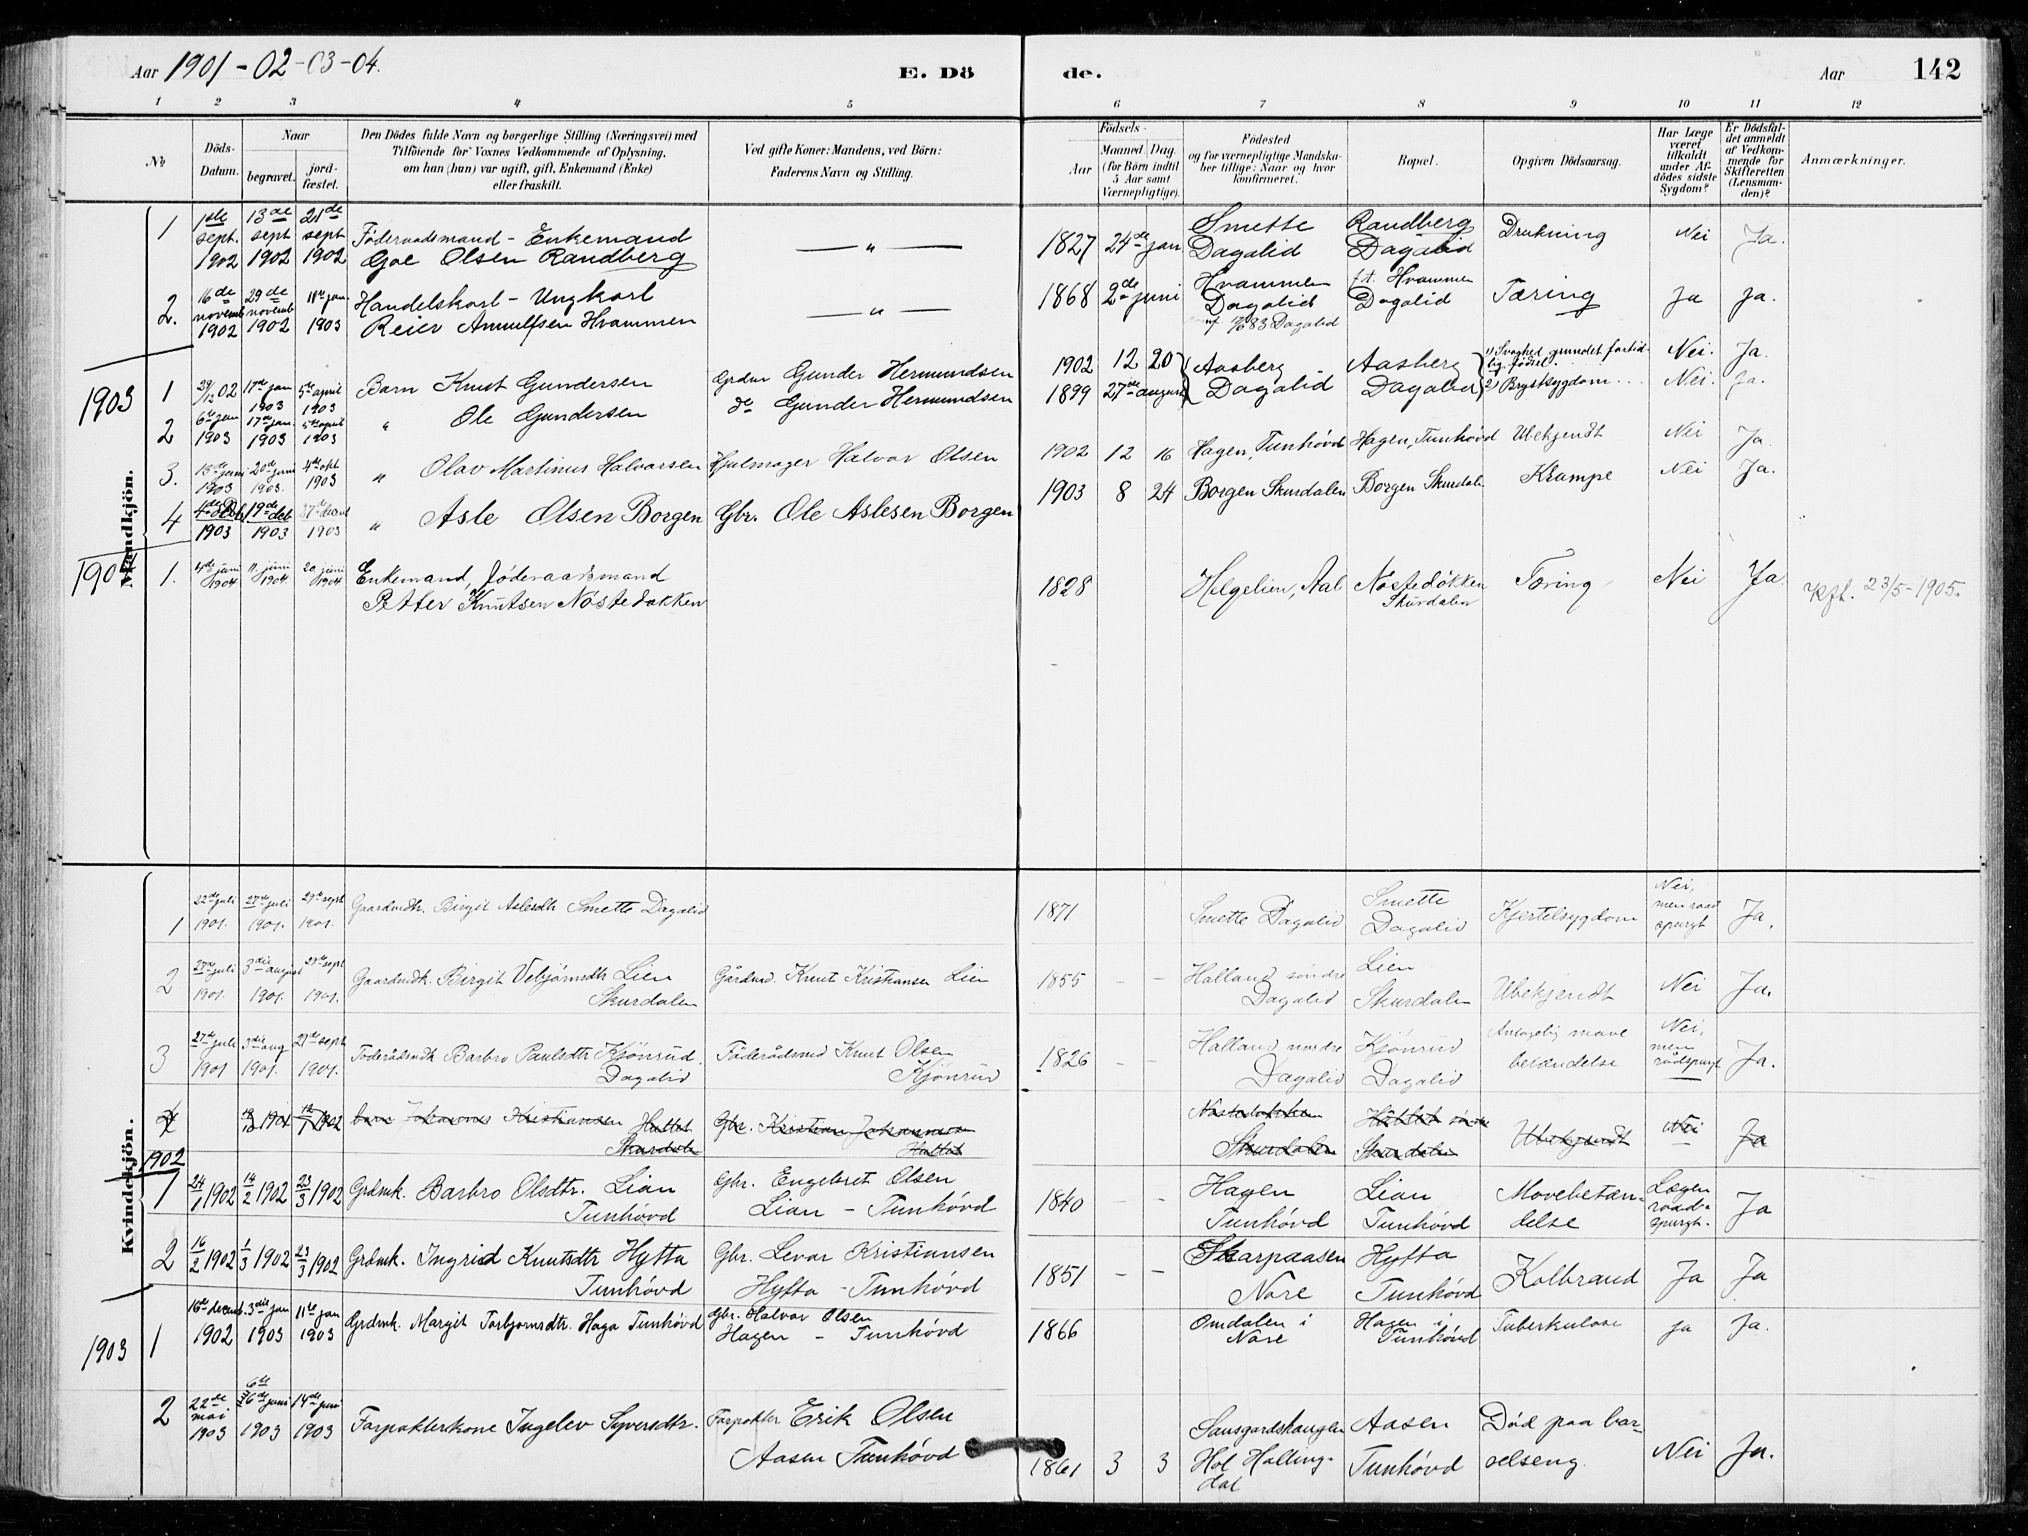 Aar 1901-02-03-04.
E. Dö
de.
Aar
142
1 2 3 4 5 6 7 8 9 10 11 12
No
Döds-
Datum.
Naar
begravet.
jord-
fæstet.
Den Dödes fulde Navn og borgerlige Stilling (Næringsvei) med
Tilföiende for Voxnes Vedkommende af Oplysning,
om han (hun) var ugift, gift, Enkemand (Enke)
eller fraskilt.
Ved gifte Koner: Mandens, ved Börn:
Faderens Navn og Stilling.
Födsels-
Aar
Maaned. Dag.
(for Börn indtil
5 Aar samt
Værnepligtige).
Födested
og for værnepligtige Mandska-
ber tillige: Naar og hvor
konfirmeret.
Bopæl.
Opgiven Dödsaarsag.
Har Læge
været
tilkaldt
under Af-
dödes sidste
Sygdom?
Er Dödsfal-
det anmeldt
af Vedkom-
mende for
Skifteretten
(Lensman-
den)?
Anmærkninger.
Mandkjön.
1 1ste sept. 1902 13de sept 1902 21de sept 1902 Föderaadsmand - Enkemand
Goe Olsen Randberg — " — 1827 24de jan Smette Dagalid Randberg Dagalid Drukning Nei Ja.
2. 16de novemb 1902 29de novemb 1902 11te jan. 1903 Handelskarl - Ungkarl
Reier Arnulfsen Hvammen — " — 1868 2de juni Hvammen Dagalid Dagalid f.t. Hvammen Dagalid Tæring Ja Ja.
1903
1 29/12 02 17de jan 1903 5te april 1903 Barn Knut Gundersen Grdm Gunder Hermundsen 1902 12 20 Aasberg Aasberg 1) Svaghed grundet fortid-
lig födsel. Nei. Ja.
2 6te jan 1903 17de jan. 1903 5te april 1903 " Ole Gundersen do Gunder Hermundsen 1899 27de august Dagalid Dagalid 2) Brystsygdom... Nei. Ja.
3. 1903 20de juni 1903. 4de okt 1903 " Olav Martinus Halvorsen Hjulmager Halvor Olsen 1902 12 16 Hagen, Tunhövd Hagen, Tunhövd Ubekjendt Nei Ja.
4 1903 19de 1903 1903 " Asle Olsen Borgen Gbr. Ole Aslesen Borgen 1903 8 24 Borgen Skurdalen Borgen Skurdalen Krampe Nei Ja.
1904
1. 4de juni 1904 11. juni 1904 20. juni 1904 Enkemand, föderaadsmand
Petter Knutsen Nöstedokken 1828 Helgelien, Aal Nöstedokken
Skurdalen Tæring Nei Ja. 23/5-1905.
Kvindekjön.
1 22de juli 1901. 27de juli 1901. 29de sept 1901. Gaardmdk. Birgit Aslesdtr Smette Dagalid 1871 Smette Dagalid Smette Dagalid Kjertelsygdom Nei, men raad
spurgt Ja.
2 27de juli 1901. 3die august 1901. 29de sept 1901. Gaardmdk. Birgit Vebjörnsdtr Lien
Skurdalen Gårdmd. Knut Kristiansen Lien 1855 - - Halland söndre
Dagalid Lien
Skurdalen Ubekjendt Nei Ja.
3 27de juli 1901 3die aug 1901. 29de sept 1901. Föderådsmdk Barbro Paulsdtr Kjönrud.
Dagalid Föderådsmd Knut Olsen
Kjönrud 1826 - - Halland nordre
Dagalid Kjönrud
Dagalid Antagelig mave
betændelse Nei, men
rådspurgt Ja.
4 barn Johannes Kristiansen
Skurdalen Gbr. Kristian Johannesen Skurdalen Skurdalen Ubekjendt Nei Ja
1902
1 24/1 1902 14/2 1902 23/3 1902 Grdmk. Barbro Olsdtr. Lian
Tunhövd Gbr. Engebret Olsen
Lian - Tunhövd 1840 - - Hagen
Tunhövd Lian
Tunhövd Mavebetæn-
delse Lægen
raad-
spurgt. Ja
2 16/2 1902 1/3 1902 23/3 1902 Grdmk. Ingrid Knutsdtr Hytta
Tunhövd Gbr. Levor Kristiansen
Hytta - Tunhövd 1851 - - Skarpaasen
Nore Hytta
Tunhövd Kolbrand Ja Ja
1903
1 16de decemb. 1902 3die jan 1903 11te jan 1903 Grdmk. Margit Torbjornsdtr. Haga Tunhövd Gbr. Halvor Olsen
Hagen - Tunhövd 1866 Omdalen i
Nore Hagen i
Tunhövd Tuberkulose ja Ja.
2 22de mai 1903 6te juni 1903 14de juni 1903 Forpakterkone Ingelev Syversdtr. Forpakter Erik Olsen
Aasen Tunhövd 1861 3 3
Hol Halling-
dal Aasen
Tunhövd Död paa bar-
selseng. Nei Ja.